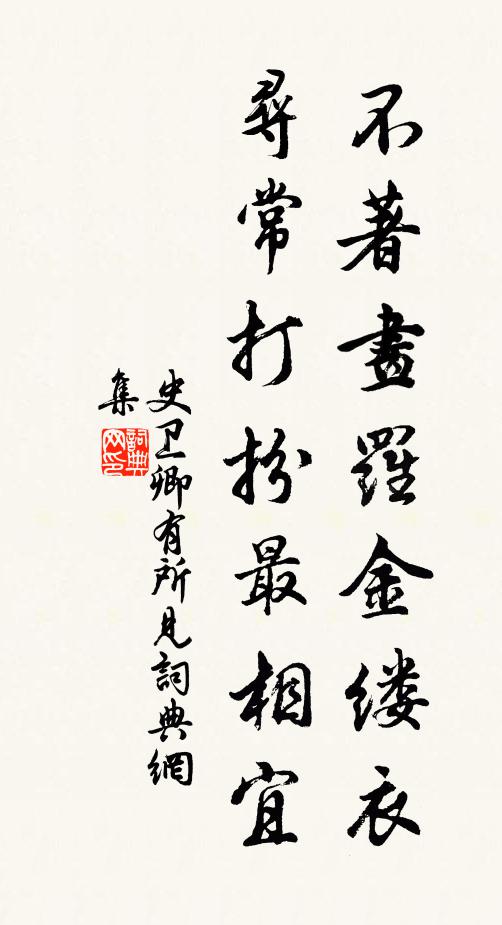 不著畫羅金缕衣
尋常打扮最相宜
史卫卿有所見詞典網
集
詞典
网印